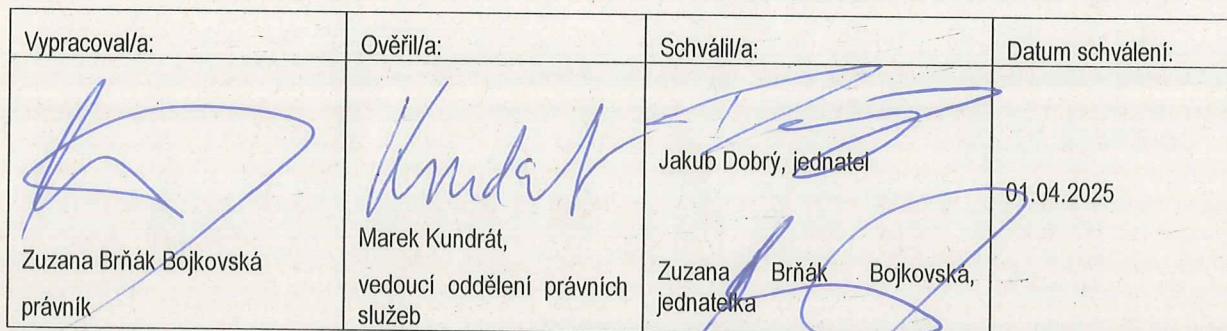 Vypracoval/a:
Ověřil/a:
Schválil/a:
Datum schválení:
Zuzana Brňák Bojkovská
právník
Kundrát
Marek Kundrát,
vedoucí oddělení právních
služeb
Jakub Dobrý, jednatel
Zuzana Brňák Bojkovská,
jednatelka
01.04.2025